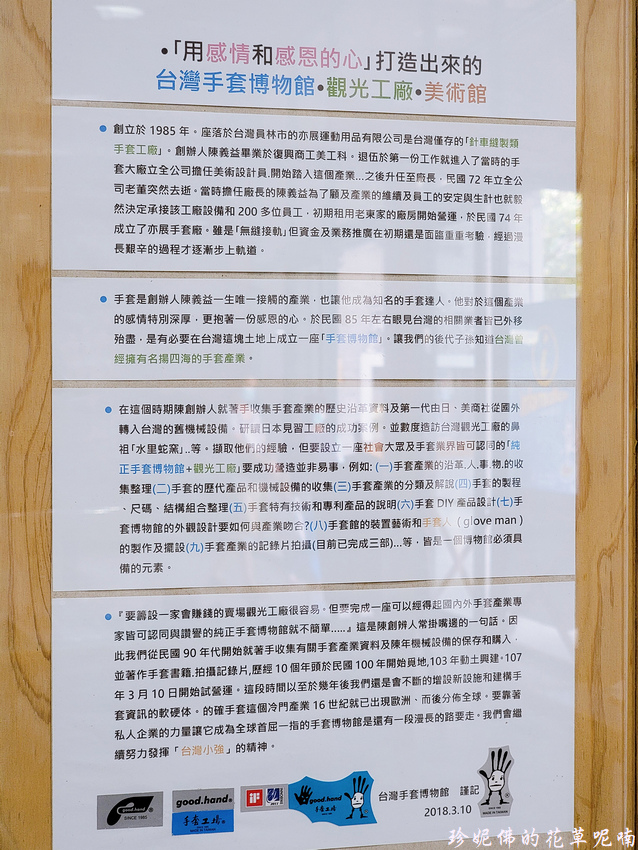 •「用感情和感恩的心」打造出來的
台灣手套博物館•觀光工廠•美術館
● 創立於 1985 年。座落於台灣員林市的亦展運動用品有限公司是台灣僅存的「針車縫製類
手套工廠」。創辦人陳義益畢業於復興商工美工科。退伍於第一份工作就進入了當時的手
套大廠立全公司擔任美術設計員,開始踏入這個產業…之後升任至廠長，民國 72 年立全公
司老董突然去逝。當時擔任廠長的陳義益為了顧及產業的維續及員工的安定與生計也就毅
然決定承接該工廠設備和 200 多位員工，初期租用老東家的廠房開始營運，於民國 74 年
成立了亦展手套廠。雖是「無縫接軌」但資金及業務推廣在初期還是面臨重重考驗，經過漫
長艱辛的過程才逐漸步上軌道。
● 手套是創辦人陳義益一生唯一接觸的產業，也讓他成為知名的手套達人。他對於這個產業
的感情特別深厚，更抱著一份感恩的心。於民國 85 年左右眼見台灣的相關業者皆已外移
殆盡，是有必要在台灣這塊土地上成立一座「手套博物館」。讓我們的後代子孫知道台灣曾
經擁有名揚四海的手套產業。
● 在這個時期陳創辦人就著手收集手套產業的歷史沿革資料及第一代由日、美商社從國外
轉入台灣的舊機械設備。研讀日本見習工廠的成功案例。並數度造訪台灣觀光工廠的鼻
祖「水里蛇窯」..等。擷取他們的經驗，但要設立一座社會大眾及手套業界皆可認同的「純
正手套博物館+觀光工廠」要成功營造並非易事，例如: (一)手套產業的沿革.人.事.物.的收
集整理(二)手套的歷代產品和機械設備的收集(三)手套產業的分類及解說(四)手套的製程
、尺碼、結構組合整理(五)手套特有技術和專利產品的說明(六)手套 DIY 產品設計(七)手
套博物館的外觀設計要如何與產業吻合?(八)手套館的裝置藝術和手套人（glove man）
的製作及擺設(九)手套產業的記錄片拍攝(目前已完成三部)…等，皆是一個博物館必須具
備的元素。
● 『要籌設一家會賺錢的賣場觀光工廠很容易。但要完成一座可以經得起國內外手套產業專
家皆可認同與讚譽的純正手套博物館就不簡單.....』這是陳創辦人常掛嘴邊的一句話。因
此我們從民國 90 年代開始就著手收集有關手套產業資料及陳年機械設備的保存和購入，
並著作手套書籍.拍攝記錄片,歷經 10 個年頭於民國 100 年開始覓地,103 年動土興建。107
年 3 月 10 日開始試營運。這段時間以至於幾年後我們還是會不斷的增設新設施和建構手
套資訊的軟硬体。的確手套這個冷門產業 16 世紀就已出現歐洲、而後分佈全球。要靠著
私人企業的力量讓它成為全球首屈一指的手套博物館是還有一段漫長的路要走。我們會繼
續努力發揮「台灣小強」的精神。
good.hand
SINCE 1985
good.hand®
手套工場®
MADE IN TAIWAN
iF
good.hand®
手套工場
台灣手套博物館　謹記
2018.3.10
MADE IN TAIWAN
珍妮佛的花草呢喃